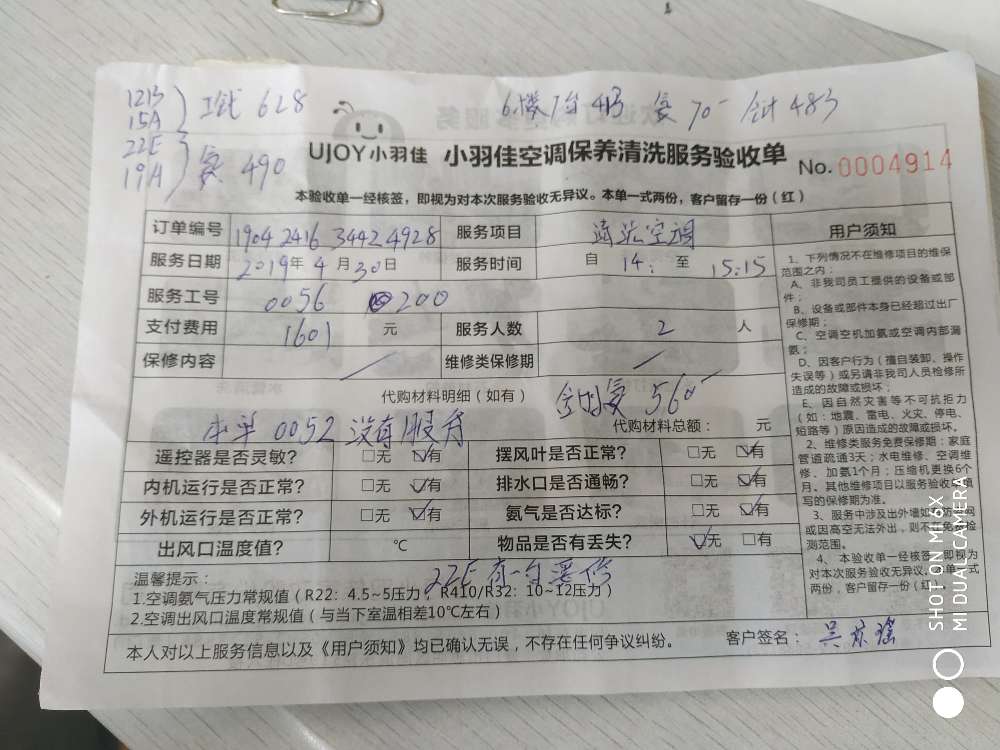 1213
15A
工钱 628
6楼1台 413 氨 70 合计 483
22E
19A
氨 490
UJOY小羽佳 小羽佳空调保养清洗服务验收单 No.0004914
本验收单一经核签，即视为对本次服务验收无异议。本单一式两份，客户留存一份（红）
订单编号 1904 2416 3442 4928 服务项目 清洗空调
服务日期 2019年 4 月 30 日 服务时间 自 14: 至 15:15
服务工号 0056 200
支付费用 1601 元 服务人数 2 人
保修内容 维修类保修期
代购材料明细（如有）
560
代购材料总额： 元
本单 0052 没有服务
遥控器是否灵敏? □无 ☑有 摆风叶是否正常? □无 ☑有
内机运行是否正常? □无 ☑有 排水口是否通畅? □无 ☑有
外机运行是否正常? □无 ☑有 氨气是否达标? □无 ☑有
出风口温度值? ℃ 物品是否有丢失? ☑无 □有
22E有一台要修
温馨提示：
1.空调氨气压力常规值（R22：4.5~5压力，R410/R32：10~12压力）
2.空调出风口温度常规值（与当下室温相差10℃左右）
本人对以上服务信息以及《用户须知》均已确认无误，不存在任何争议纠纷。 客户签名：
用户须知
1、下列情况不在维修项目的维保
范围之内：
A、非我司员工提供的设备或部
件；
B、设备或部件本身已经超过出厂
保修期；
C、空调空机加氨或空调内部漏
氨；
D、因客户行为（擅自装卸、操作
失误等）或另请非我司人员检修所
造成的故障或损坏；
E、因自然灾害等不可抗拒力
（如：地震、雷电、火灾、停电、
短路等）原因造成的故障或损坏。
2、维修类服务免费保修期：家庭
管道疏通3天；水电维修、空调维
修、加氨1个月；压缩机更换6个
月。其他维修项目以服务验收单填
写的保修期为准。
3、服务中涉及出外墙如遇防盗网
或因高空无法外出，则不免费检
测范围。
4、本验收单一经核签，即视为
对本次服务验收无异议。本单一式
两份，客户留存一份（红）。
SHOT ON MI 6X
MI DUAL CAMERA